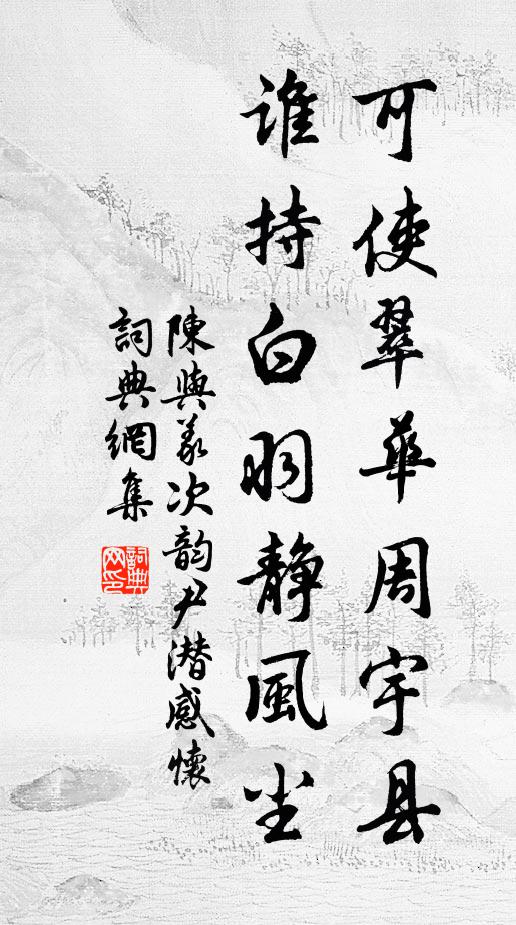 可使翠華周宇县
谁持白羽静風尘
陳與義次韵尹潜感懷
詞典網集
詞典網印